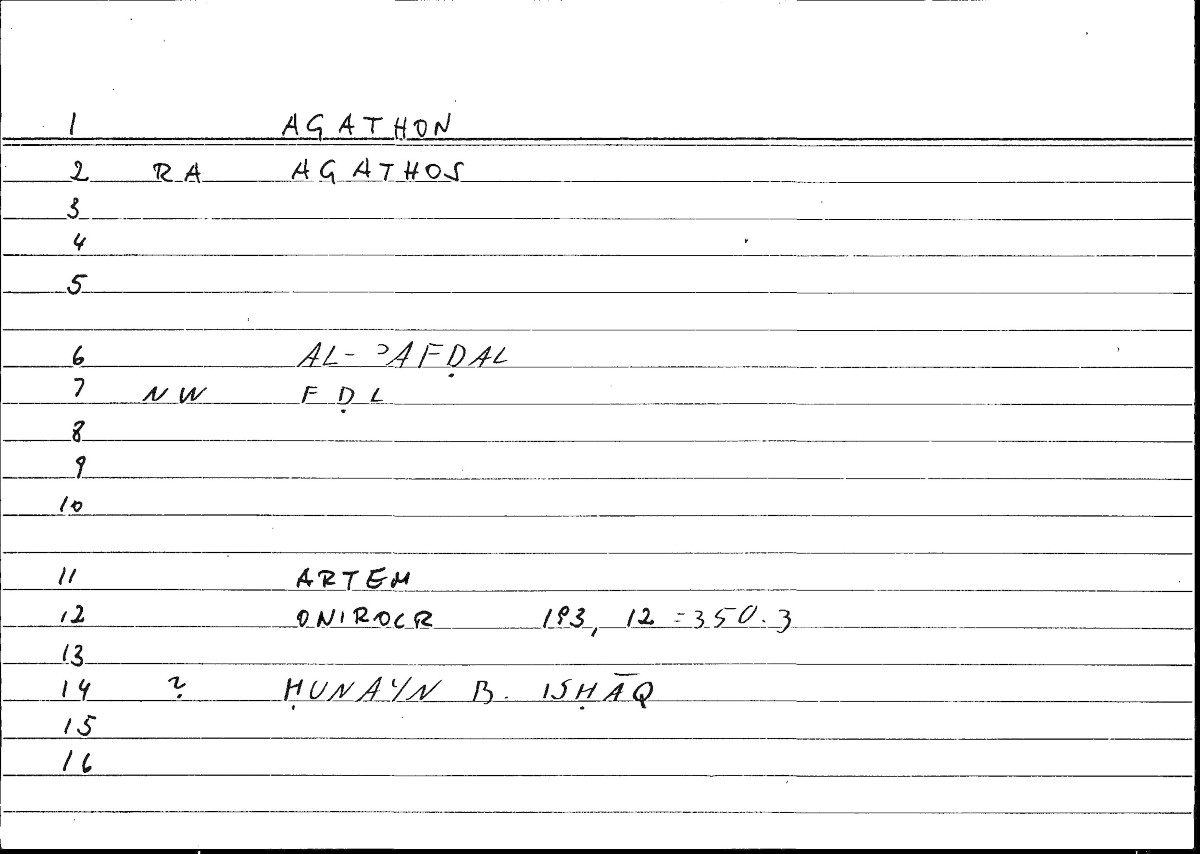 1 AGATHON
2 RA AGATHOS
3
4
5
6 AL- ʾAFḌAL
7 NW FḌL
8
9
10
11 ARTEM
12 ONIROCR 193, 12 = 350.3
13
14 ? ḤUNAYN B. ISḤĀQ
15
16